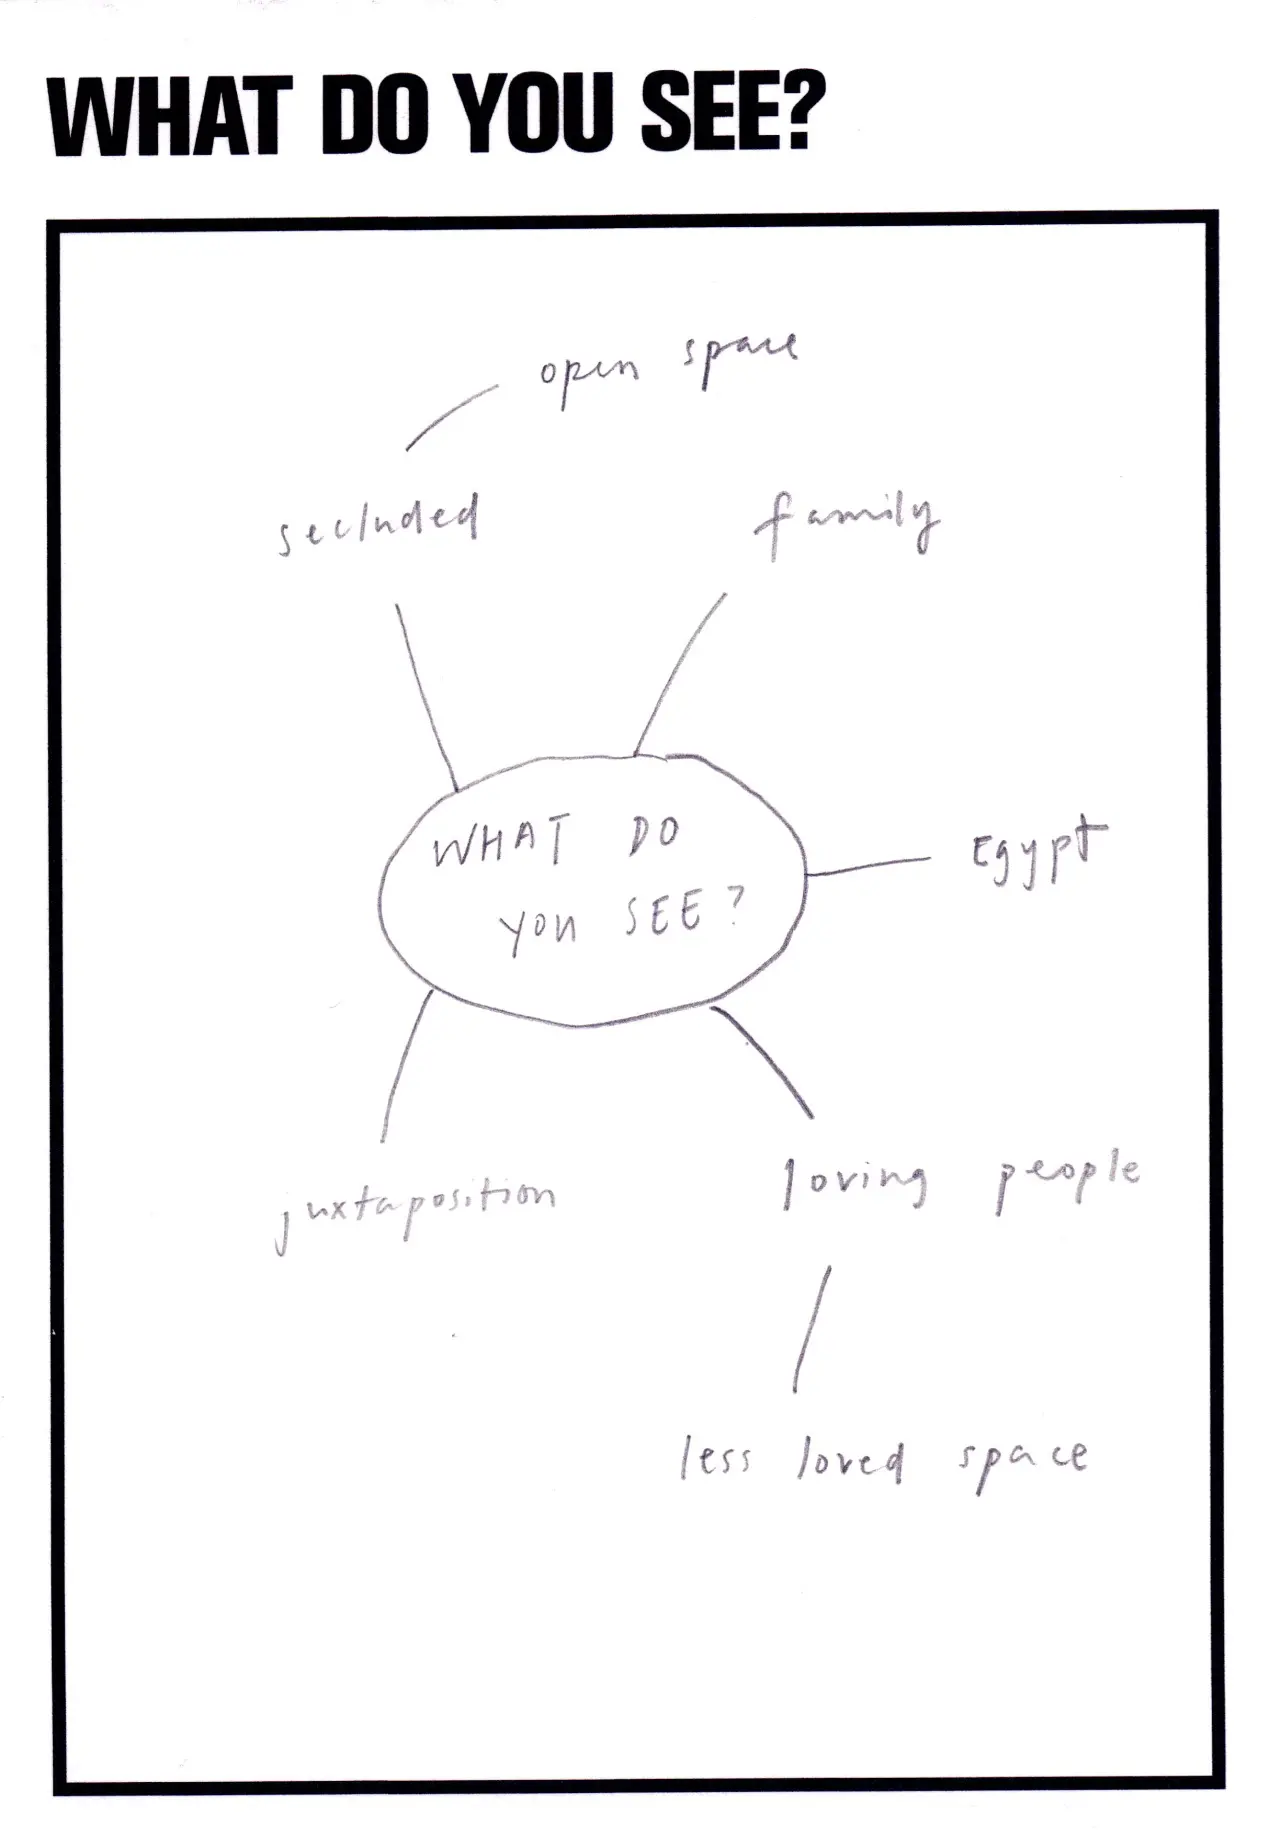 WHAT DO YOU SEE?
open space
secluded
family
WHAT DO
YOU SEE?
Egypt
juxtaposition
loving people
less loved space